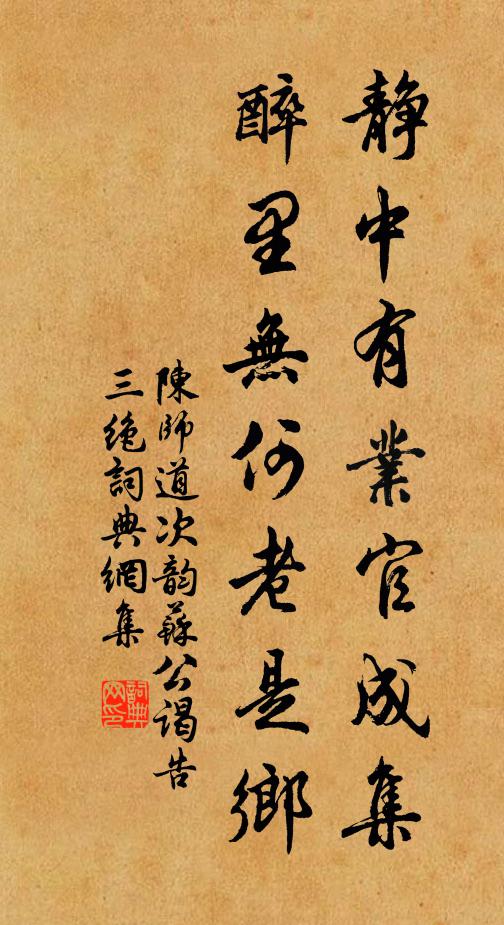 靜中有業官成集
醉里無何老是鄉
陳師道次韵蘇公謁告
三绝詞典網集
詞典
网印